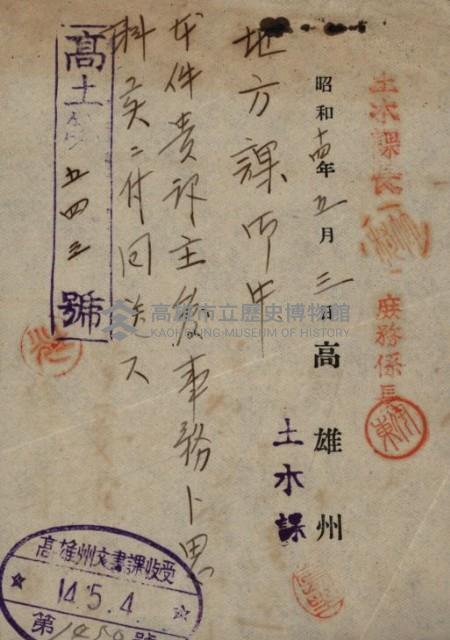 土木課長
庶務係長
昭和十四年五月三日 高雄州
土木課
地方課御中
本件貴部主管事務ト思
料候ニ付回送ス
高土第五四三號
高雄市立歷史博物館
KAOHSIUNG MUSEUM OF HISTORY
高雄州文書課收受
14.5.4
第 號